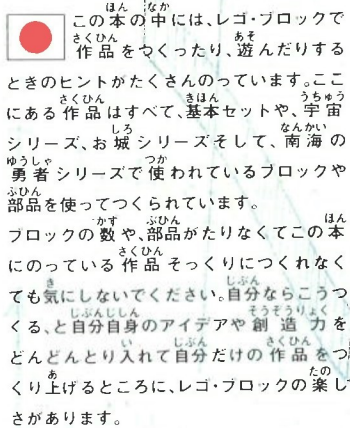 この本の中には、レゴ・ブロックで
作品をつくったり、遊んだりする
ときのヒントがたくさんのっています。ここ
にある作品はすべて、基本セットや、宇宙
シリーズ、お城シリーズそして、南海の
勇者シリーズで使われているブロックや
部品を使ってつくられています。
ブロックの数や、部品がたりなくてこの本
にのっている作品そっくりにつくれなく
ても気にしないでください。自分ならこうつ
くる、と自分自身のアイデアや創造力を
どんどんとり入れて自分だけの作品をつ
くり上げるところに、レゴ・ブロックの楽し
さがあります。